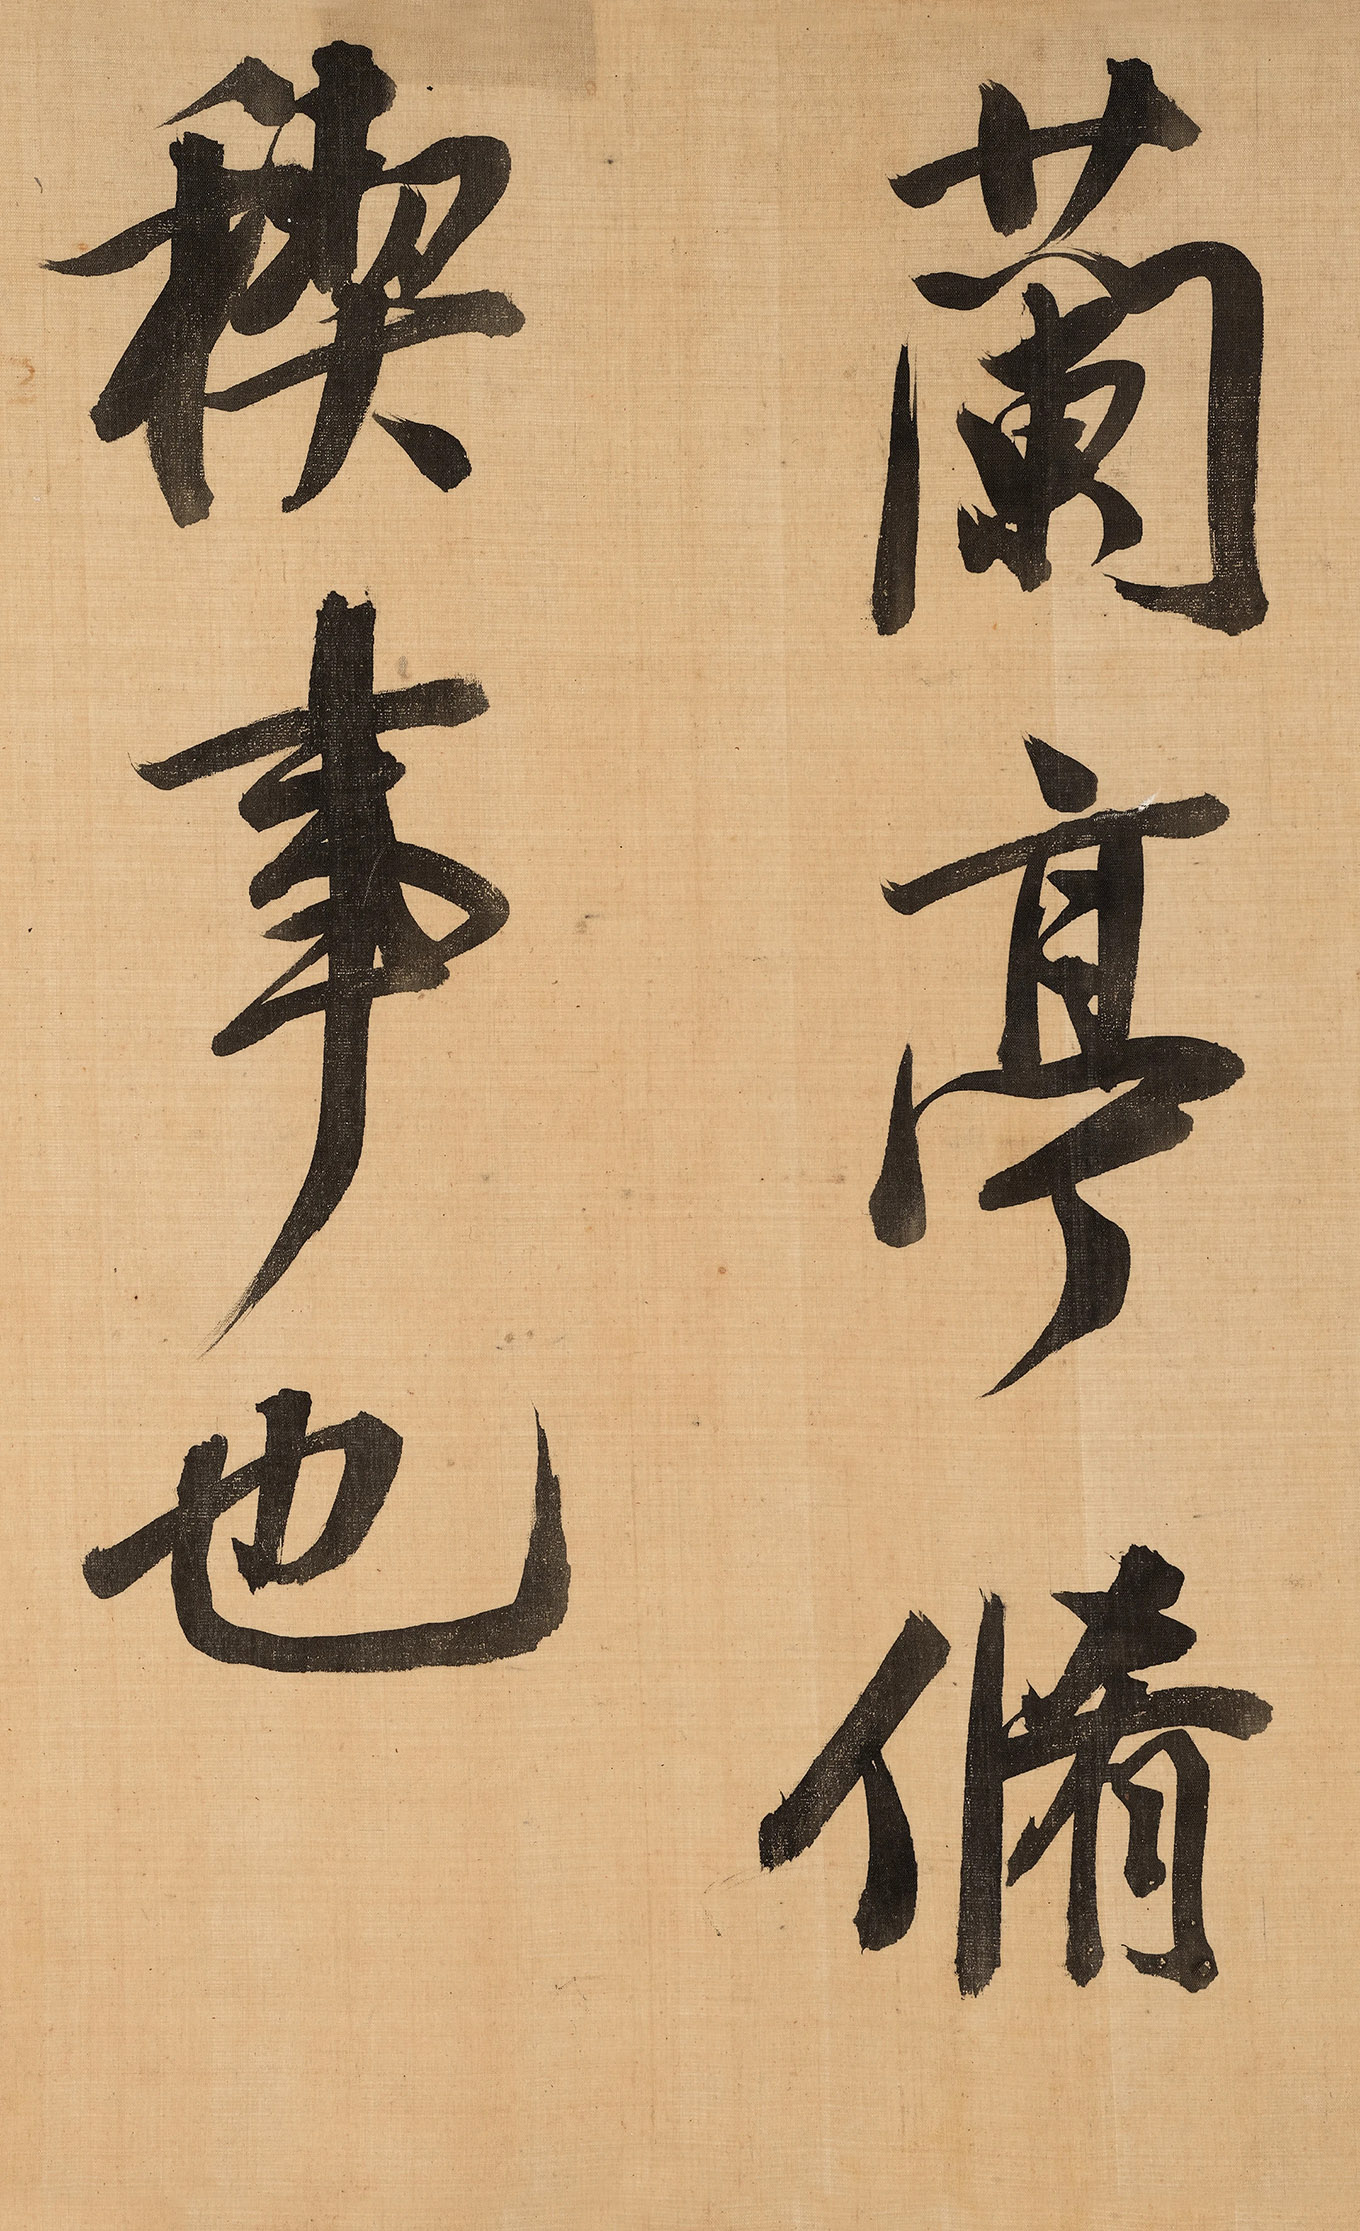 蘭亭脩
稧事也